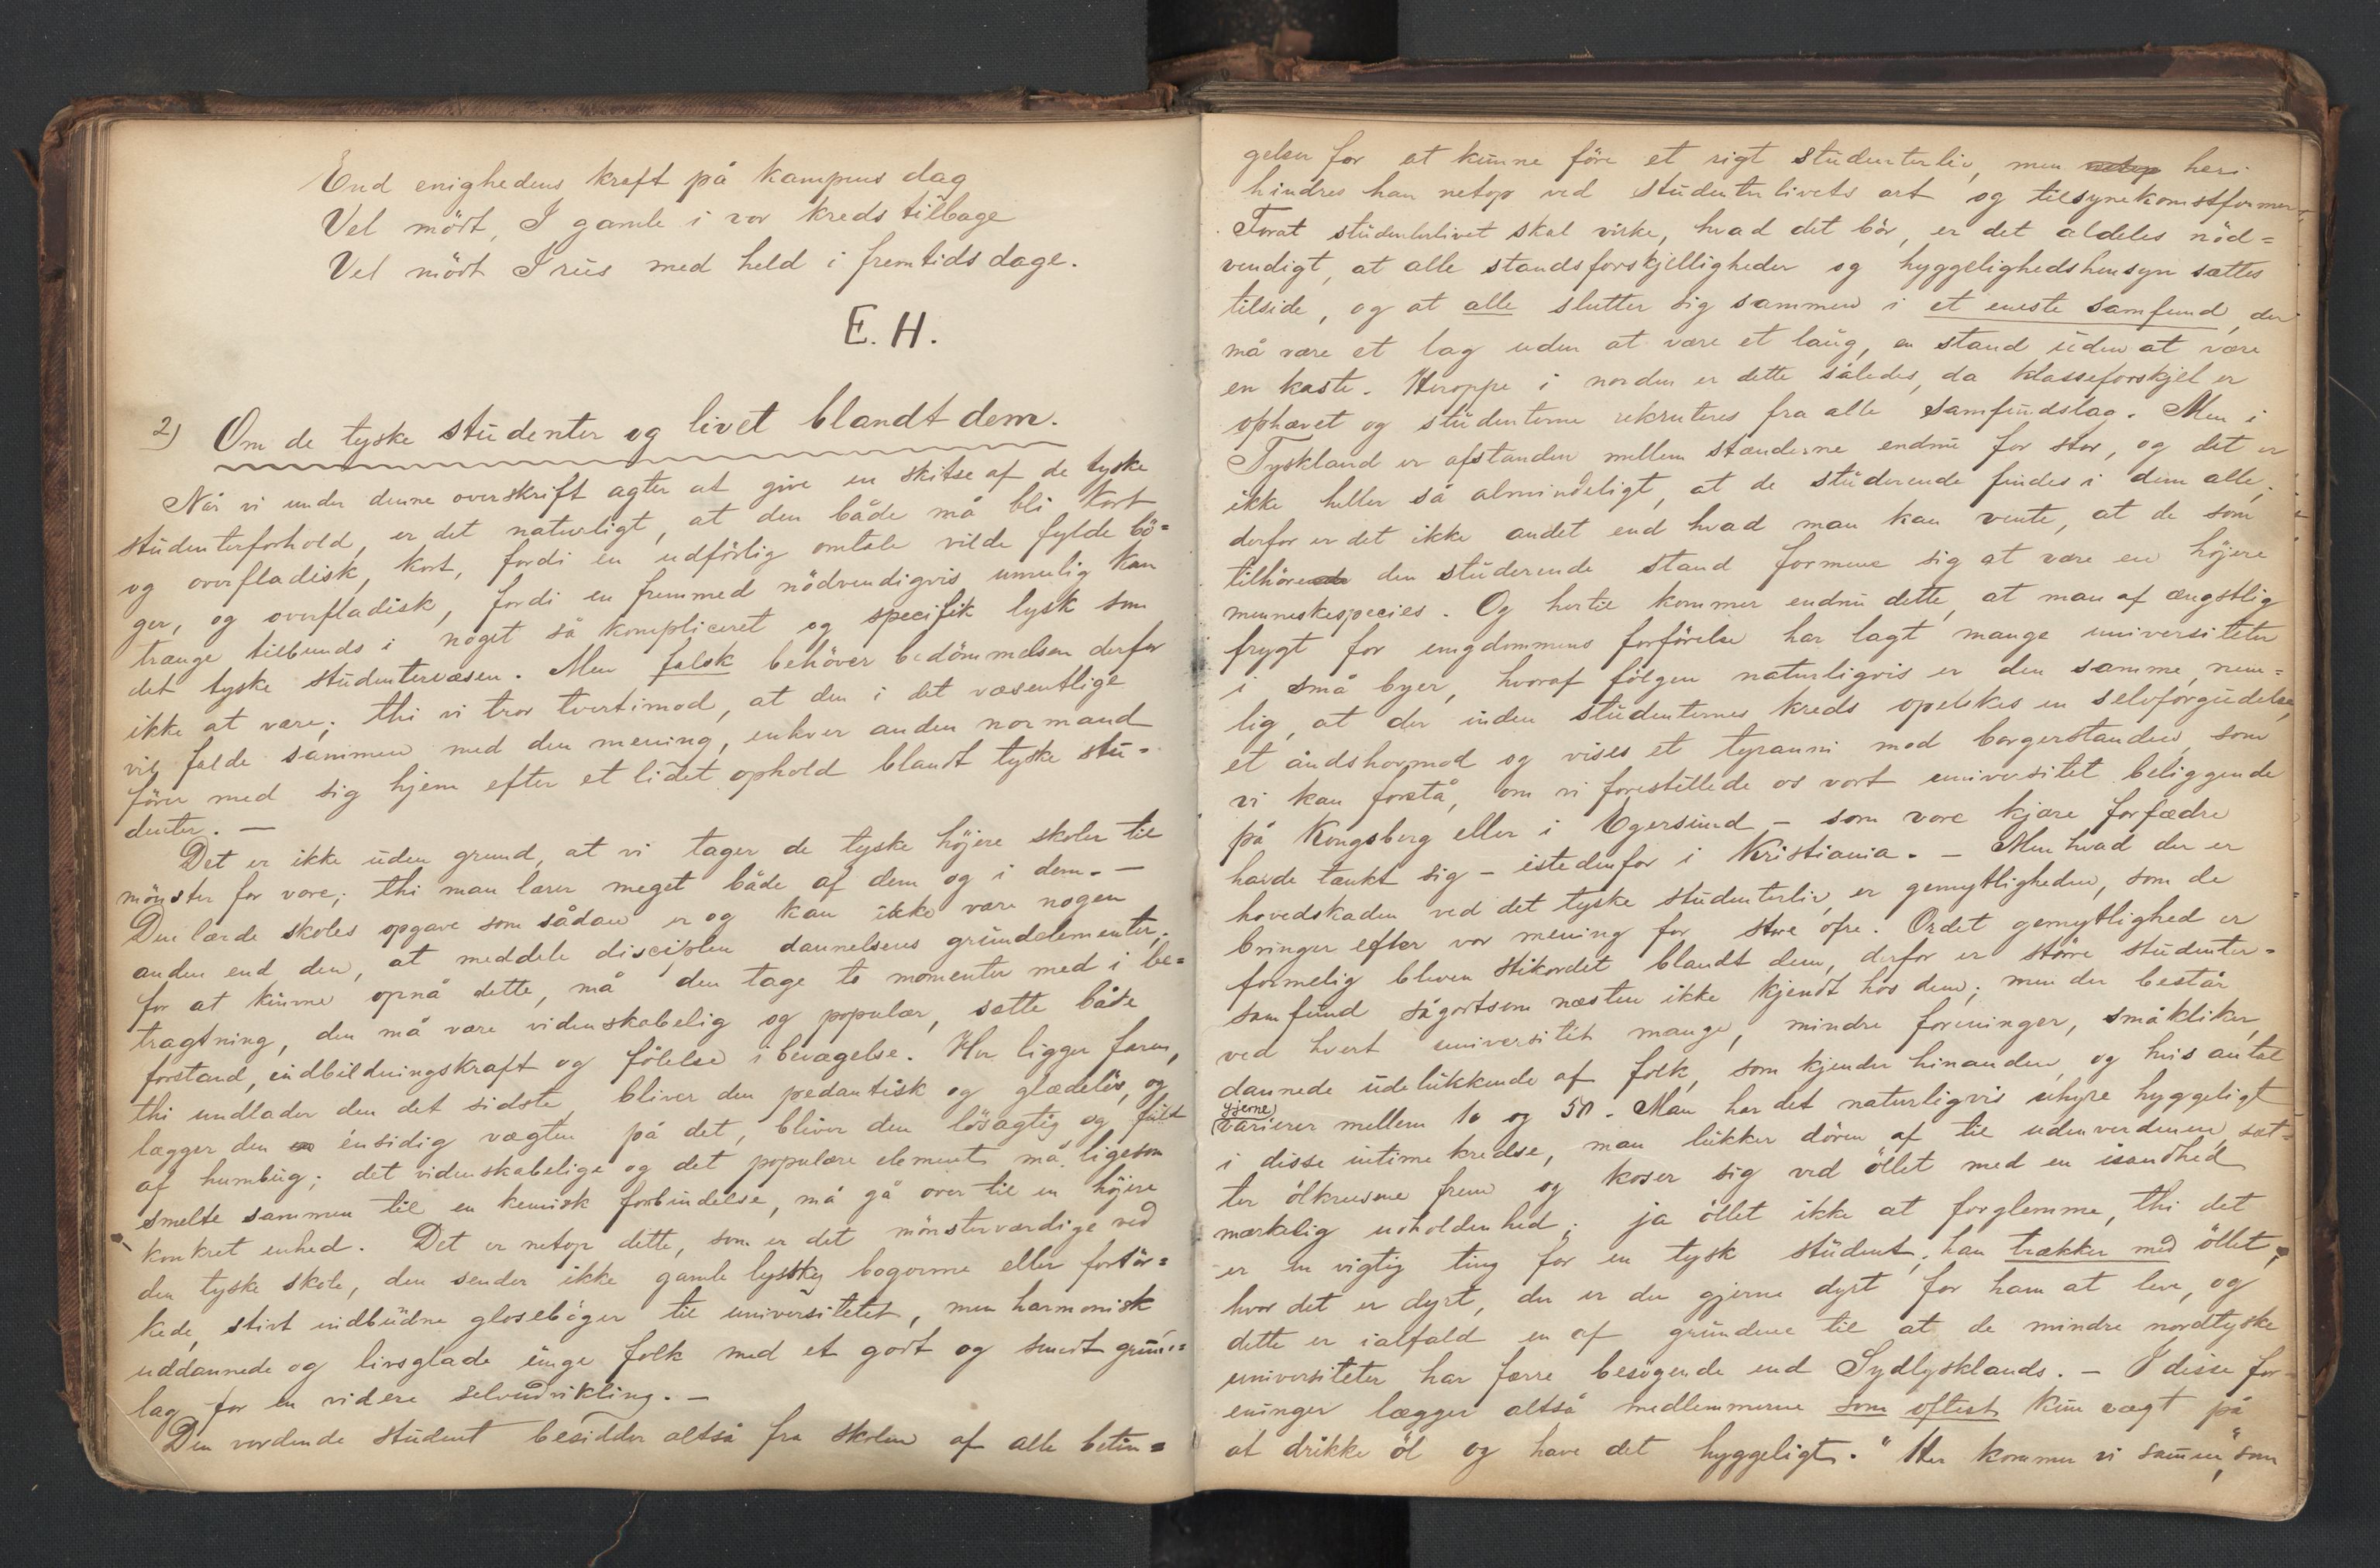 End enighedens kraft på kampens dag
Vel mødt, I gamle i vor kreds tilbage
Vel mødt I rus med held i fremtids dage.
E. H.
2) Om de tyske studenter og livet blandt dem.
Når vi under denne overskrift agter at give en skitse af de tyske
studenterforhold, er det naturligt, at den både må bli kort
og overfladisk, kort, fordi en udförlig omtale vilde fylde bö=
ger, og overfladisk, fordi en fremmed nödvendigvis umulig kan
trænge tilbunds i noget så kompliceret og specifik tysk som
det tyske studentervæsen. Men falsk behöver bedömmelsen derfor
ikke at være; thi vi tror tvertimod, at den i det væsentlige
vil falde sammen med den mening, enhver anden normand
förer med sig hjem efter et lidet ophold blandt tyske stu=
denter. —
Det er ikke uden grund, at vi tager de tyske höjere skoler til
mönster for vore; thi man lærer meget både af dem og i dem. —
Den lærde skoles opgave som sådan er og kan ikke være nogen
anden end den, at meddele disciplen dannelsens grundelementer;
for at kunne opnå dette, må den tage to momenter med i be=
tragtning, den må være videnskabelig og populær, sætte både
forstand, indbildningskraft og fölelse i bevægelse. Her ligger faren,
thi undlader den det sidste, bliver den pedantisk og glædelös, og
lægger den énsidig vægten på det, bliver den lösagtig og fuld
af humbug; det videnskabelige og det populære element må ligesom
smelte sammen til en kemisk forbindelse, må gå over til en höjere
konkret enhed. Det er netop dette, som er det mönsterværdige ved
den tyske skole, den sender ikke gamle lyssky bogorme eller fortör=
kede, stivt indbundne gloseböger til universitetet, men harmonisk
uddannede og livsglade unge folk med et godt og sundt grund=
lag for en videre selvudvikling. —
Den vordende student besidder altså fra skolen af alle betin=
gelser for at kunne före et rigt studenterliv, men netop heri
hindres han netop ved studenterlivets art og tilsynekomstformer.
Forat studenterlivet skal virke, hvad det bör, er det aldeles nöd=
vendigt, at alle standsforskjelligheder og hyggelighedshensyn sættes
tilside, og at alle slutter sig sammen i et eneste samfund, der
må være et lag uden at være et laug, en stand uden at være
en kaste. Heroppe i norden er dette således, da klasseforskjel er
ophævet og studenterne rekruteres fra alle samfundslag. Men i
Tyskland er afstanden mellem stænderne endnu for stor, og det er
ikke heller så almindeligt, at de studerende findes i dem alle;
derfor er det ikke andet end hvad man kan vente, at de som
tilhörende den studerende stand formene sig at være en höjere
menneskespecies. Og hertil kommer endnu dette, at man af ængstlig
frygt for ungdommens forförelse har lagt mange universiteter
i små byer, hvoraf fölgen naturligvis er den samme, nem=
lig, at der inden studenternes kreds opelskes en selvforgudelse,
et åndshovmod og vises et tyranni mod borgerstanden, som
vi kan forstå, om vi forestillede os vort universitet beliggende
på Kongsberg eller i Egersund – som vore kjære forfædre
havde tænkt sig – istedenfor i Kristiania. – Men hvad der er
hovedskaden ved det tyske studenterliv, er gemytligheden, som de
bringer efter vor mening for store ofre. Ordet gemytlighed er
formelig bleven stikordet blandt dem, derfor er större studenter=
samfund sågodtsom næsten ikke kjendt hos dem; men der består
ved hvert universitet mange, mindre foreninger, småkliker,
dannede udelukkende af folk, som kjender hinanden, og hvis antal
(gjerne) varierer mellem 10 og 50. Man har det naturligvis uhyre hyggeligt
i disse intime kredse, man lukker dören af til udenverdenen, sæt=
ter ölkrusene frem og koser sig ved öllet med en isandhed
mærkelig udholdenhed; ja öllet ikke at forglemme, thi det
er en vigtig ting for en tysk student, han trækker med öllet;
hvor det er dyrt, der er der gjerne dyrt for ham at leve, og
dette er ialfald en af grundene til at de mindre nordtyske
universiteter har færre besögende end Sydtysklands. – I disse for=
eninger lægger altså medlemmerne som oftest kun vægt på
at drikke öl og have det hyggeligt. "Her kommer vi samen", som